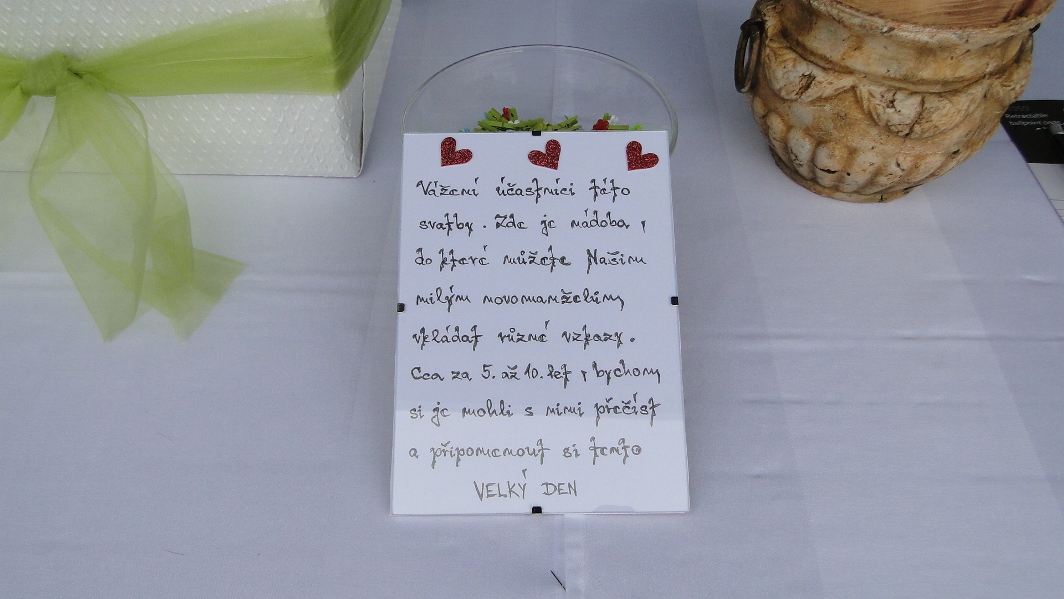 Vážení účastníci této
svatby. Zde je nádoba,
do které můžete Našim
milým novomanželům,
vkládat různé vzkazy.
Cca za 5. až 10. let, bychom
si je mohli s nimi přečíst
a připomenout si tento
VELKÝ DEN
Retractable
ballpoint pen